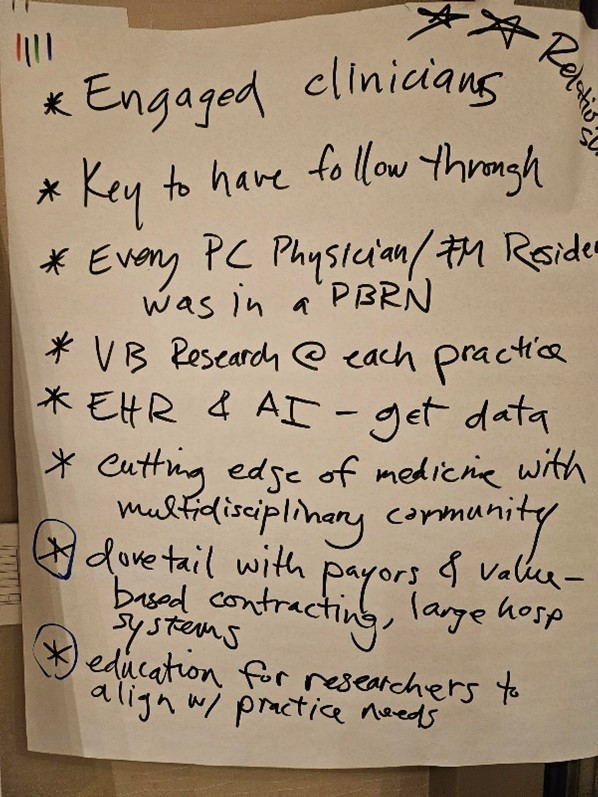 * Engaged clinicians
* Key to have follow through
* Every PC Physician/FM Reside
was in a PBRN
* VB Research @ each practice
* EHR & AI - get data
* cutting edge of medicine with
multidisciplinary community
* dovetail with payors & value-
based contracting, large hosp
systems
* education for researchers to
align w/ practice needs